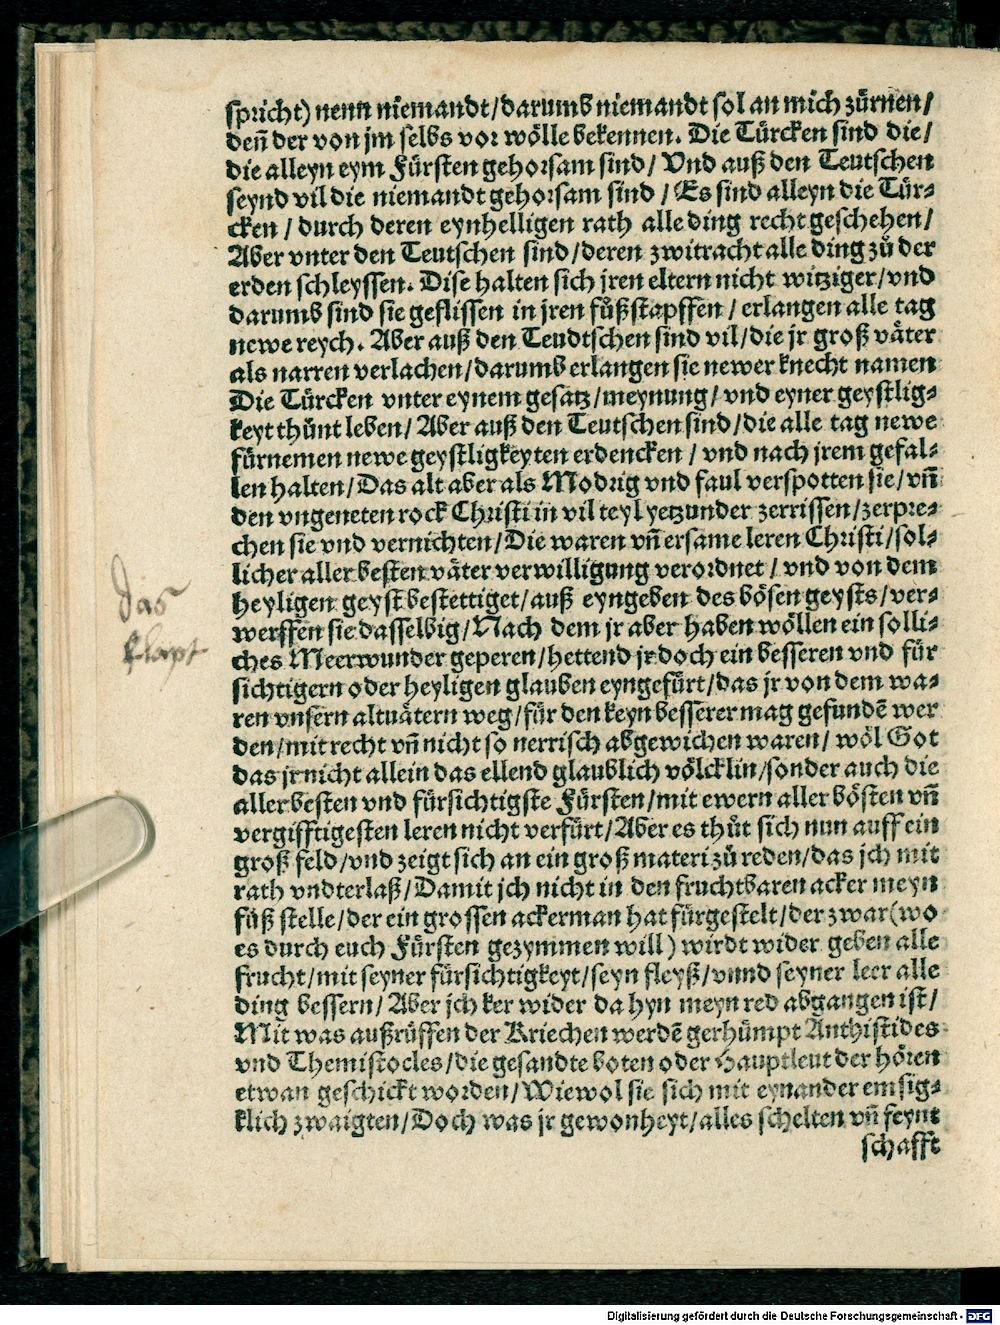 spricht) nenn niemandt/darumb niemandt sol an mich zürnen/
deñ der von jm selbs vor wölle bekennen. Die Türcken sind die/
die alleyn eym Fürsten gehorsam sind/ Vnd auß den Teutschen
seynd vil die niemandt gehorsam sind/ Es sind alleyn die Tür-
cken/ durch deren eynhelligen rath alle ding recht geschehen/
Aber vnter den Teutschen sind/deren zwitracht alle ding zů der
erden schleyssen. Dise halten sich jren eltern nicht witziger/vnd
darumb sind sie geflissen in jren fůßstapffen/ erlangen alle tag
newe reych. Aber auß den Teudtschen sind vil/die jr groß väter
als narren verlachen/darumb erlangen sie newer knecht namen
Die Türcken vnter eynem gesatz/meynung/ vnd eyner geystlig-
keyt thünt leben/ Aber auß den Teutschen sind/die alle tag newe
fürnemen newe geystligkeyten erdencken/ vnd nach jrem gefal-
len halten/Das alt aber als Modrig vnd faul verspotten sie/vñ
den vngeneten rock Christi in vil teyl yetzunder zerrissen/zerpre-
chen sie vnd vernichten/Die waren vñ ersame leren Christi/sol-
licher aller besten väter verwilligung verordnet/ vnd von dem
heyligen geyst bestettiget/auß eyngeben des bösen geysts/ver-
werffen sie dasselbig/Nach dem jr aber haben wöllen ein solli-
ches Meerwunder geperen/hettend jr doch ein besseren vnd für
sichtigern oder heyligen glauben eyngefürt/das jr von dem wa-
ren vnsern altuätern weg/für den keyn besserer mag gefundē wer
den/mit recht vñ nicht so nerrisch abgewichen waren/ wöl Got
das jr nicht allein das ellend glaublich völcklin/sonder auch die
aller besten vnd fürsichtigste Fürsten/mit ewern aller bösten vñ
vergifftigesten leren nicht verfürt/Aber es thůt sich nun auff ein
groß feld/vnd zeigt sich an ein groß materi zů reden/das jch mit
rath vndterlaß/Damit jch nicht in den fruchtbaren acker meyn
fůß stelle/der ein grossen ackerman hat fürgestelt/der zwar(wo
es durch euch Fürsten gezymmen will) wirdt wider geben alle
frucht/mit seyner fürsichtigkeyt/seyn fleyß/vnnd seyner leer alle
ding bessern/Aber jch ker wider da hyn meyn red abgangen ist/
Mit was außrüffen der Kriechen werdē gerhümpt Anthistides
vnd Themistocles/die gesandte boten oder Hauptleut der hören
etwan geschickt worden/Wiewol sie sich mit eynander emsig-
klich zwaigten/Doch was jr gewonheyt/alles schelten vñ feynt
schafft
das
Digitalisierung gefördert durch die Deutsche Forschungsgemeinschaft - DFG